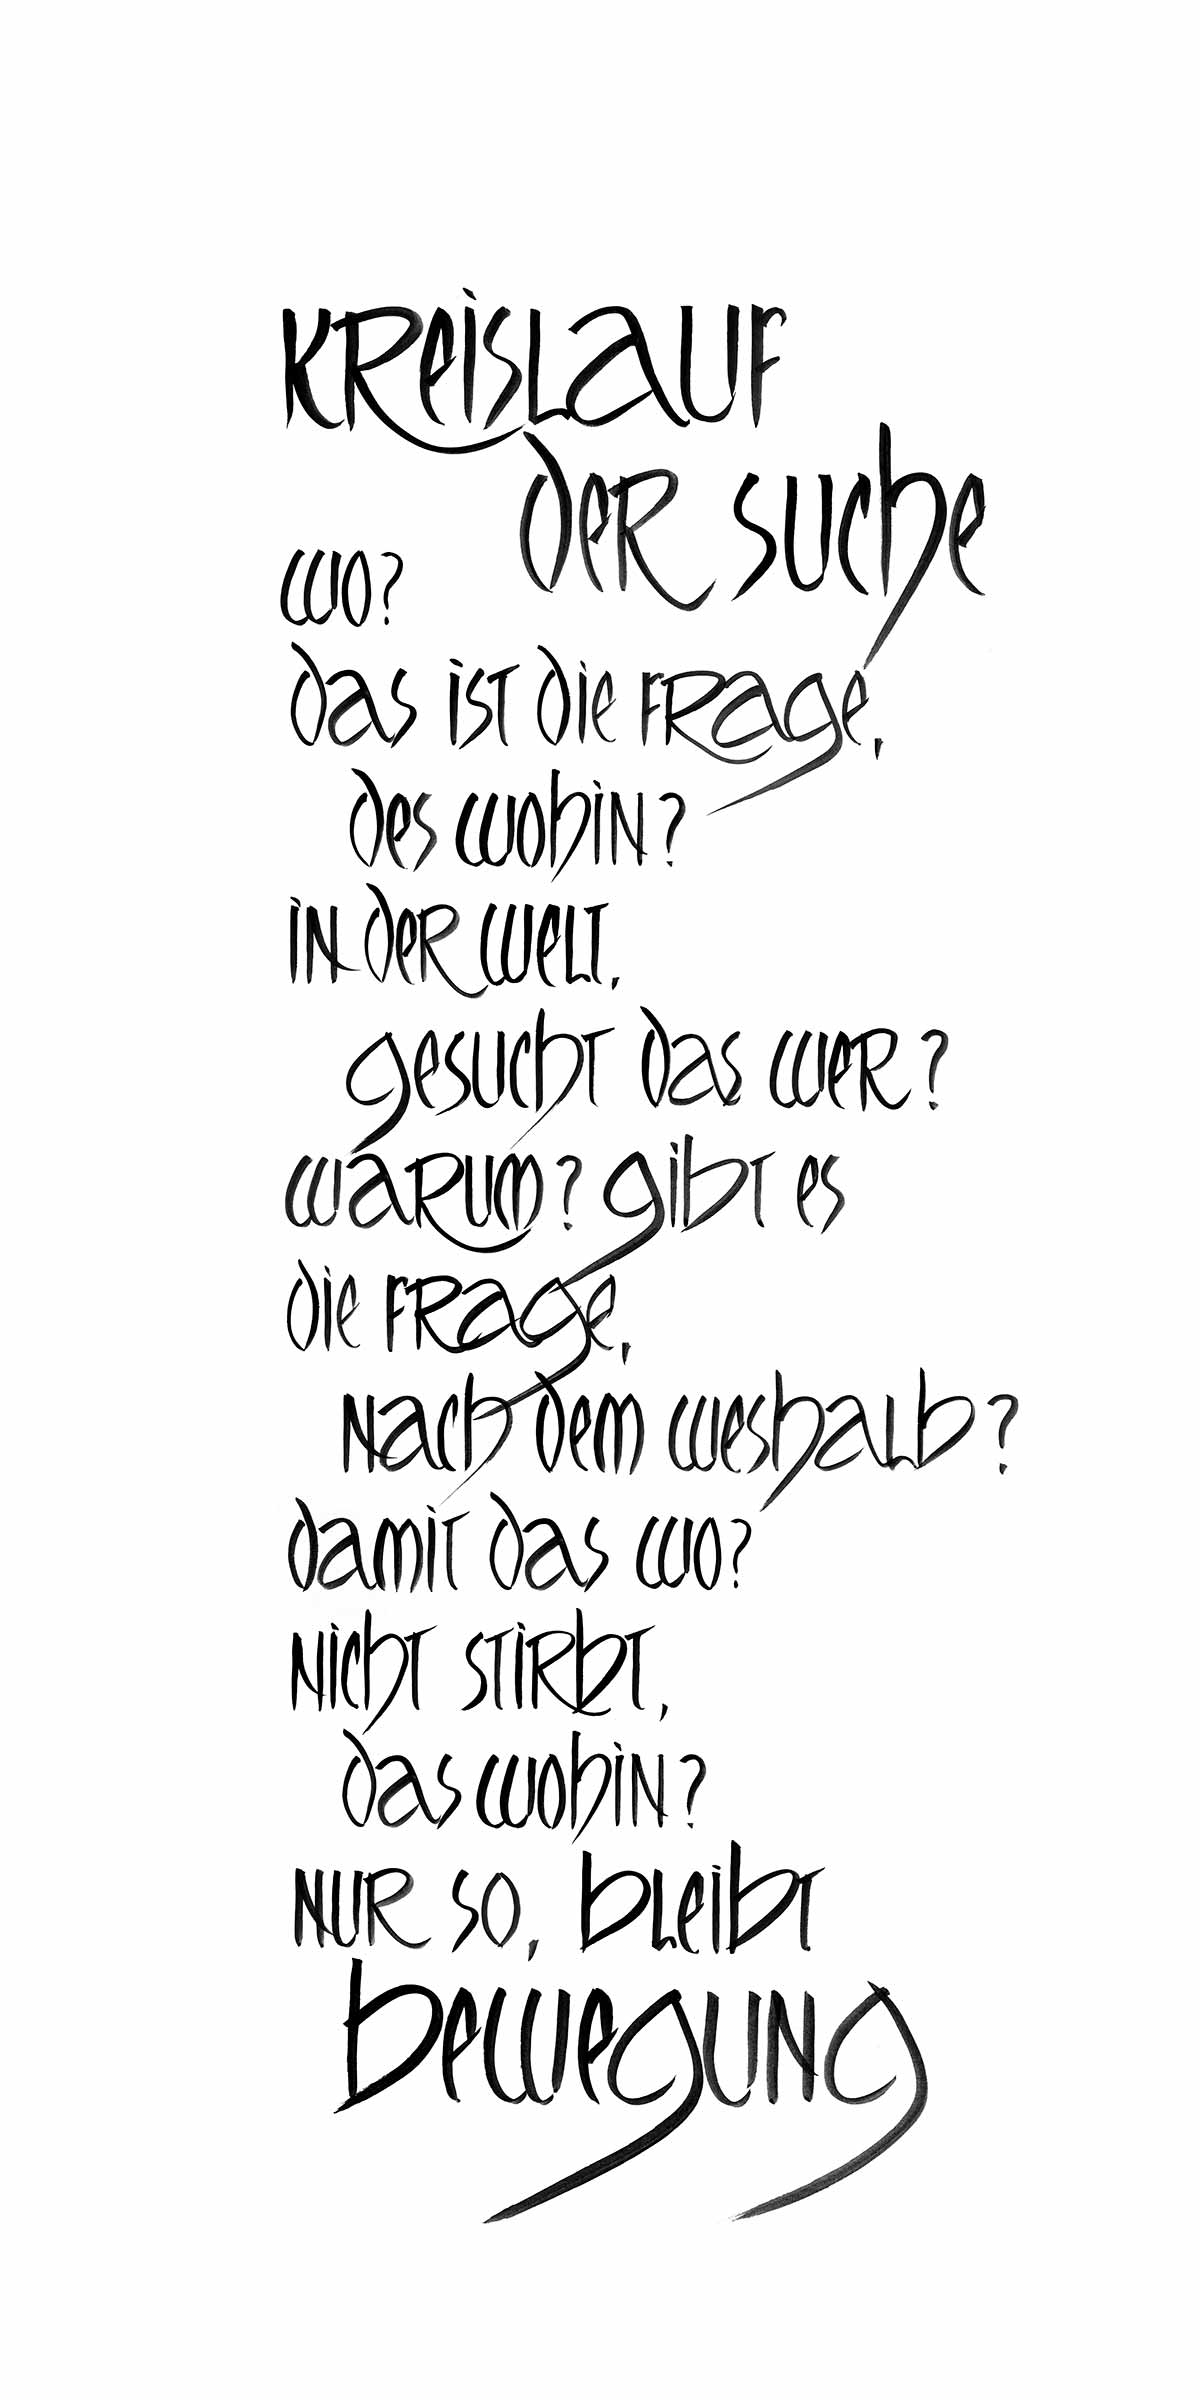 Kreislauf
der Suche
wo?
das ist die Frage,
des wohin?
in der welt,
gesucht das wer?
warum? gibt es
die Frage,
nach dem weshalb?
damit das wo?
nicht stirbt,
das wohin?
nur so, bleibt
bewegung